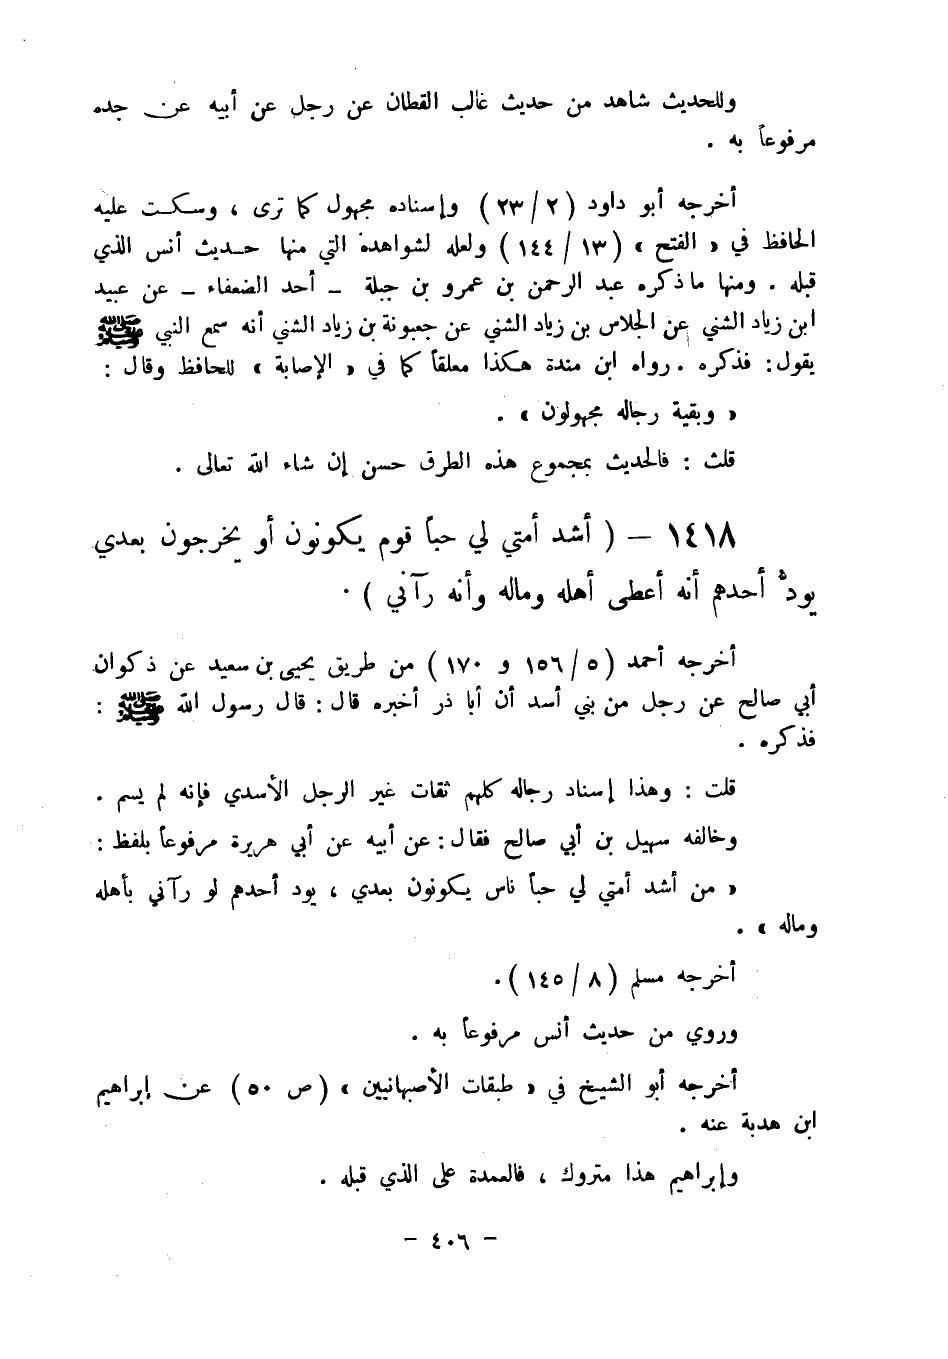 وللحديث شاهد من حديث غالب القطان عن رجل عن أبيه عن جده
مرفوعاً به .
أخرجه أبو داود ( ٢ / ٢٣ ) وإسناده مجهول كما ترى ، وسكت عليه
الحافظ في « الفتح » ( ١٣ / ١٤٤ ) ولعله لشواهدة التي منها حديث أنس الذي
قبله . ومنها ما ذكره عبد الرحمن بن عمرو بن جبلة ـ أحد الضعفاء ـ عن عبيد
ابن زياد الشني عن الجلاس بن زياد الشني عن جعبونة بن زياد الشني أنه سمع النبي ﷺ
يقول : فذكره . رواه ابن مندة هكذا معلقاً كما في « الإصابة » للحافظ وقال :
« وبقية رجاله مجهولون » .
قلت : فالحديث بمجموع هذه الطرق حسن إن شاء الله تعالى .
١٤١٨ – ( أشد أمتي لي حباً قوم يكونون أو يخرجون بعدي
يودُّ أحدهم أنه أعطى أهله وماله وأنه رآني ) .
أخرجه أحمد ( ٥ / ١٥٦ و ١٧٠ ) من طريق يحيى بن سعيد عن ذكوان
أبي صالح عن رجل من بني أسد أن أبا ذر أخبره قال : قال رسول الله ﷺ :
فذكره .
قلت : وهذا إسناد رجاله كلهم ثقات غير الرجل الأسدي فإنه لم يسم .
وخالفه سهيل بن أبي صالح فقال : عن أبيه عن أبي هريرة مرفوعاً بلفظ :
« من أشد أمتي لي حباً ناس يكونون بعدي ، يود أحدهم لو رآني بأهله
وماله » .
أخرجه مسلم ( ٨ / ١٤٥ ) .
وروي من حديث أنس مرفوعاً به .
أخرجه أبو الشيخ في « طبقات الأصبهانيين » ( ص ٥٠ ) عن إبراهيم
ابن هدبة عنه .
وإبراهيم هذا متروك ، فالعمدة على الذي قبله .
– ٤٠٦ –